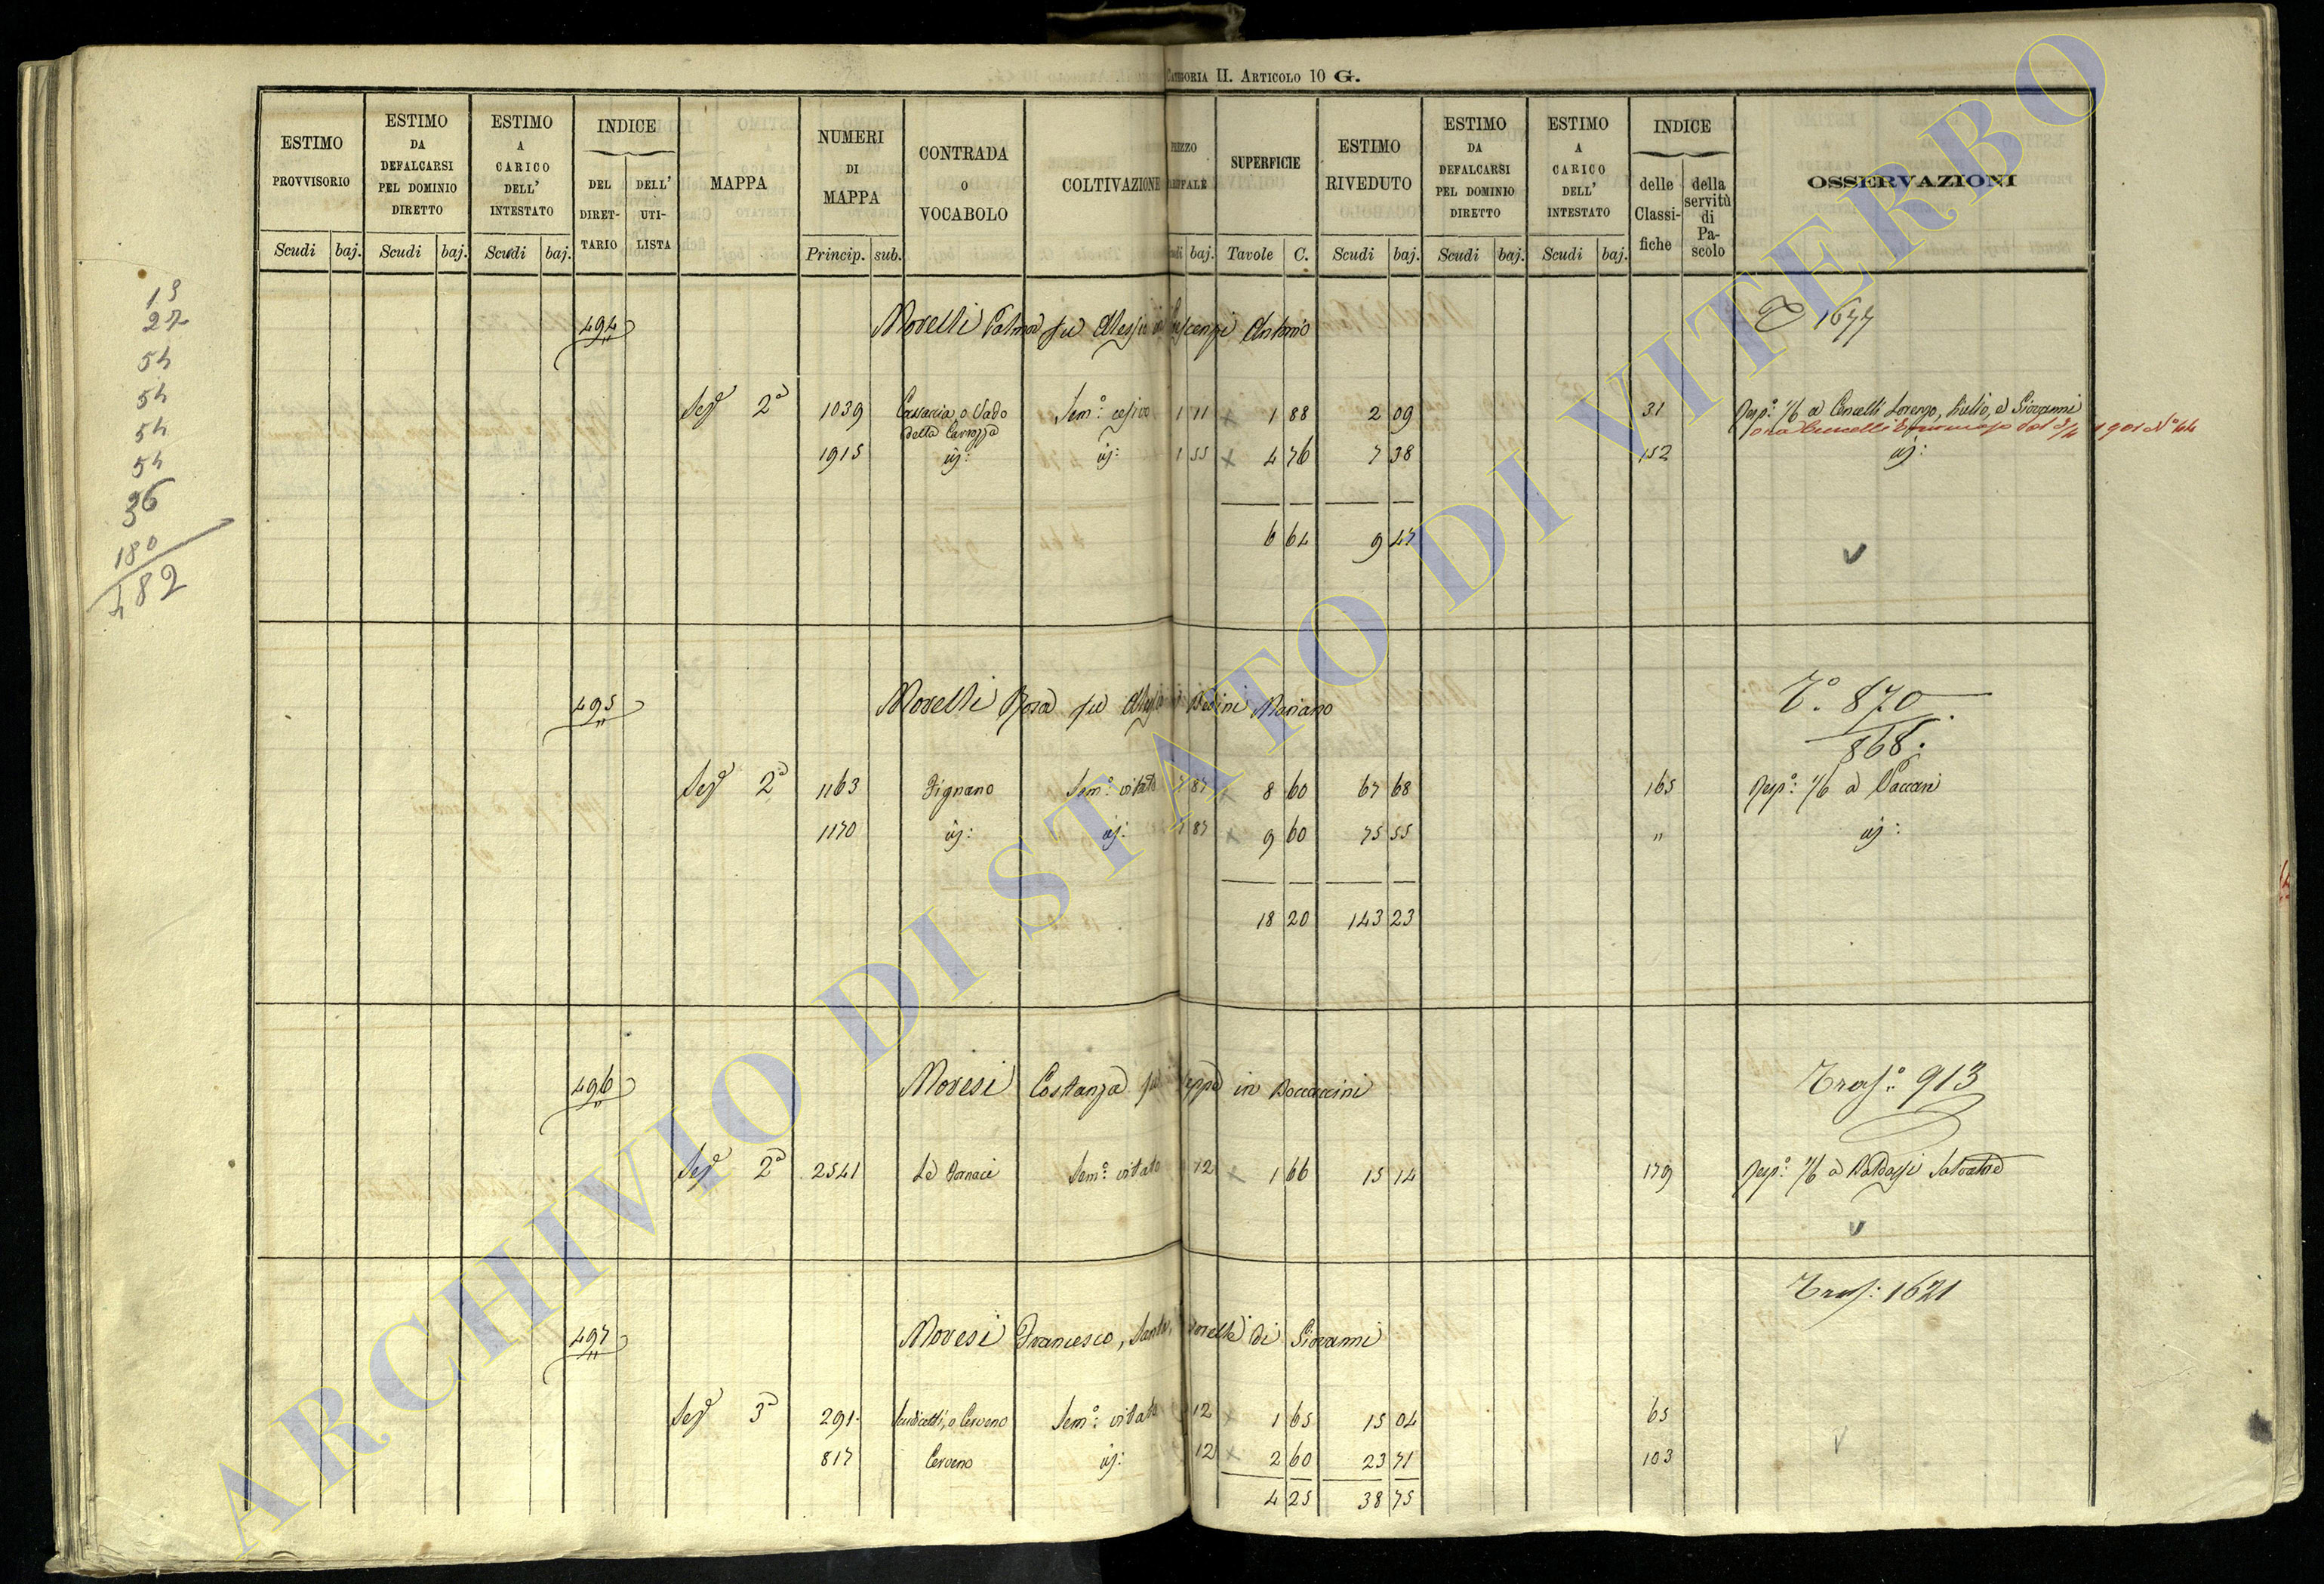 CATEGORIA II. ARTICOLO 10 G.
ESTIMO PROVVISORIO
Scudi baj.
ESTIMO DA DEFALCARSI PEL DOMINIO DIRETTO
Scudi baj.
ESTIMO A CARICO DELL' INTESTATO
Scudi baj.
INDICE
DEL DIRETTARIO
DELL' UTILISTA
MAPPA
NUMERI DI MAPPA
Princip. sub.
CONTRADA O VOCABOLO
COLTIVAZIONE
baj.
SUPERFICIE
Tavole C.
ESTIMO RIVEDUTO
Scudi baj.
ESTIMO DA DEFALCARSI PEL DOMINIO DIRETTO
Scudi baj.
ESTIMO A CARICO DELL' INTESTATO
Scudi baj.
INDICE
delle Classifiche
della servitù di Pascolo
OSSERVAZIONI
13
27
54
54
54
54
36
180
482
494 Morelli Palma fu Alessio in Crescenzi Antonio 1677
Sez.e 2a 1039 o Vado della Carrozza Sem.o 1 11 1 88 2 09 31 Risp.o 1/6 a Cencelli Lorenzo, Giulio, e Giovanni
1901 N° 44
1915 id: id: 1 55 4 76 7 38 152 id:
6 64 9 47
495 Morelli Rosa fu Alessio in Medini Mariano T.o 870
868.
Sez.e 2a 1163 Fignano Sem.o vitato 7 87 8 60 67 68 165 Risp.o 1/6 a Vaccari
1170 id: id: 7 87 9 60 75 55 " id:
18 20 143 23
496 Moresi Costanza fu in Boccaccini Trasf.o 913
Sez.e 2a 2541 Le Fornaci Sem.o vitato 12 1 66 15 14 179 Risp.o 1/6 a Baldassi Salvatore
Trasf: 1621
497 Moresi Francesco, Sante, sorelle di Giovanni
Sez.e 3a 291 o Cerveno Sem.o vitato 12 1 65 15 04 65
817 Cerveno id: 12 2 60 23 71 103
4 25 38 75
ARCHIVIO DI STATO DI VITERBO